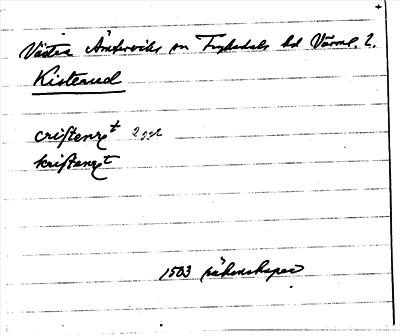 Västra Ämterviks sn Fryksdals hd Värml. l.
Kisterud
cristenꝛ t 2 ggr
kristenꝛ t
1503 räkenskaper